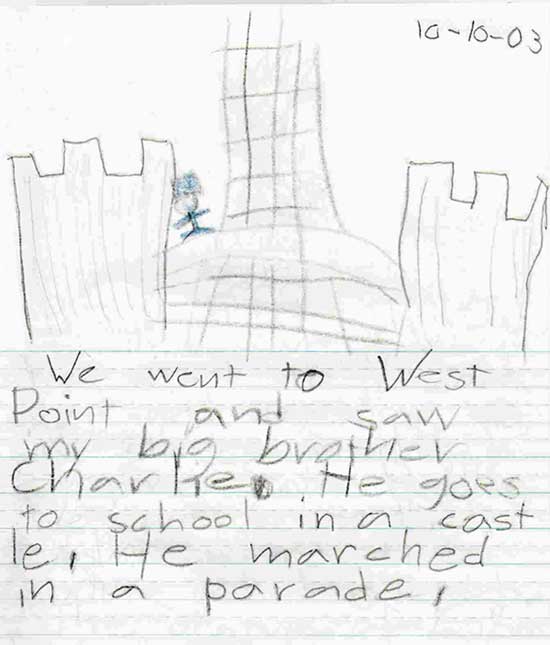 10-10-03
We went to West
Point and saw
my big brother
Charlie. He goes
to school in a cast
le, He marched
in a parade,